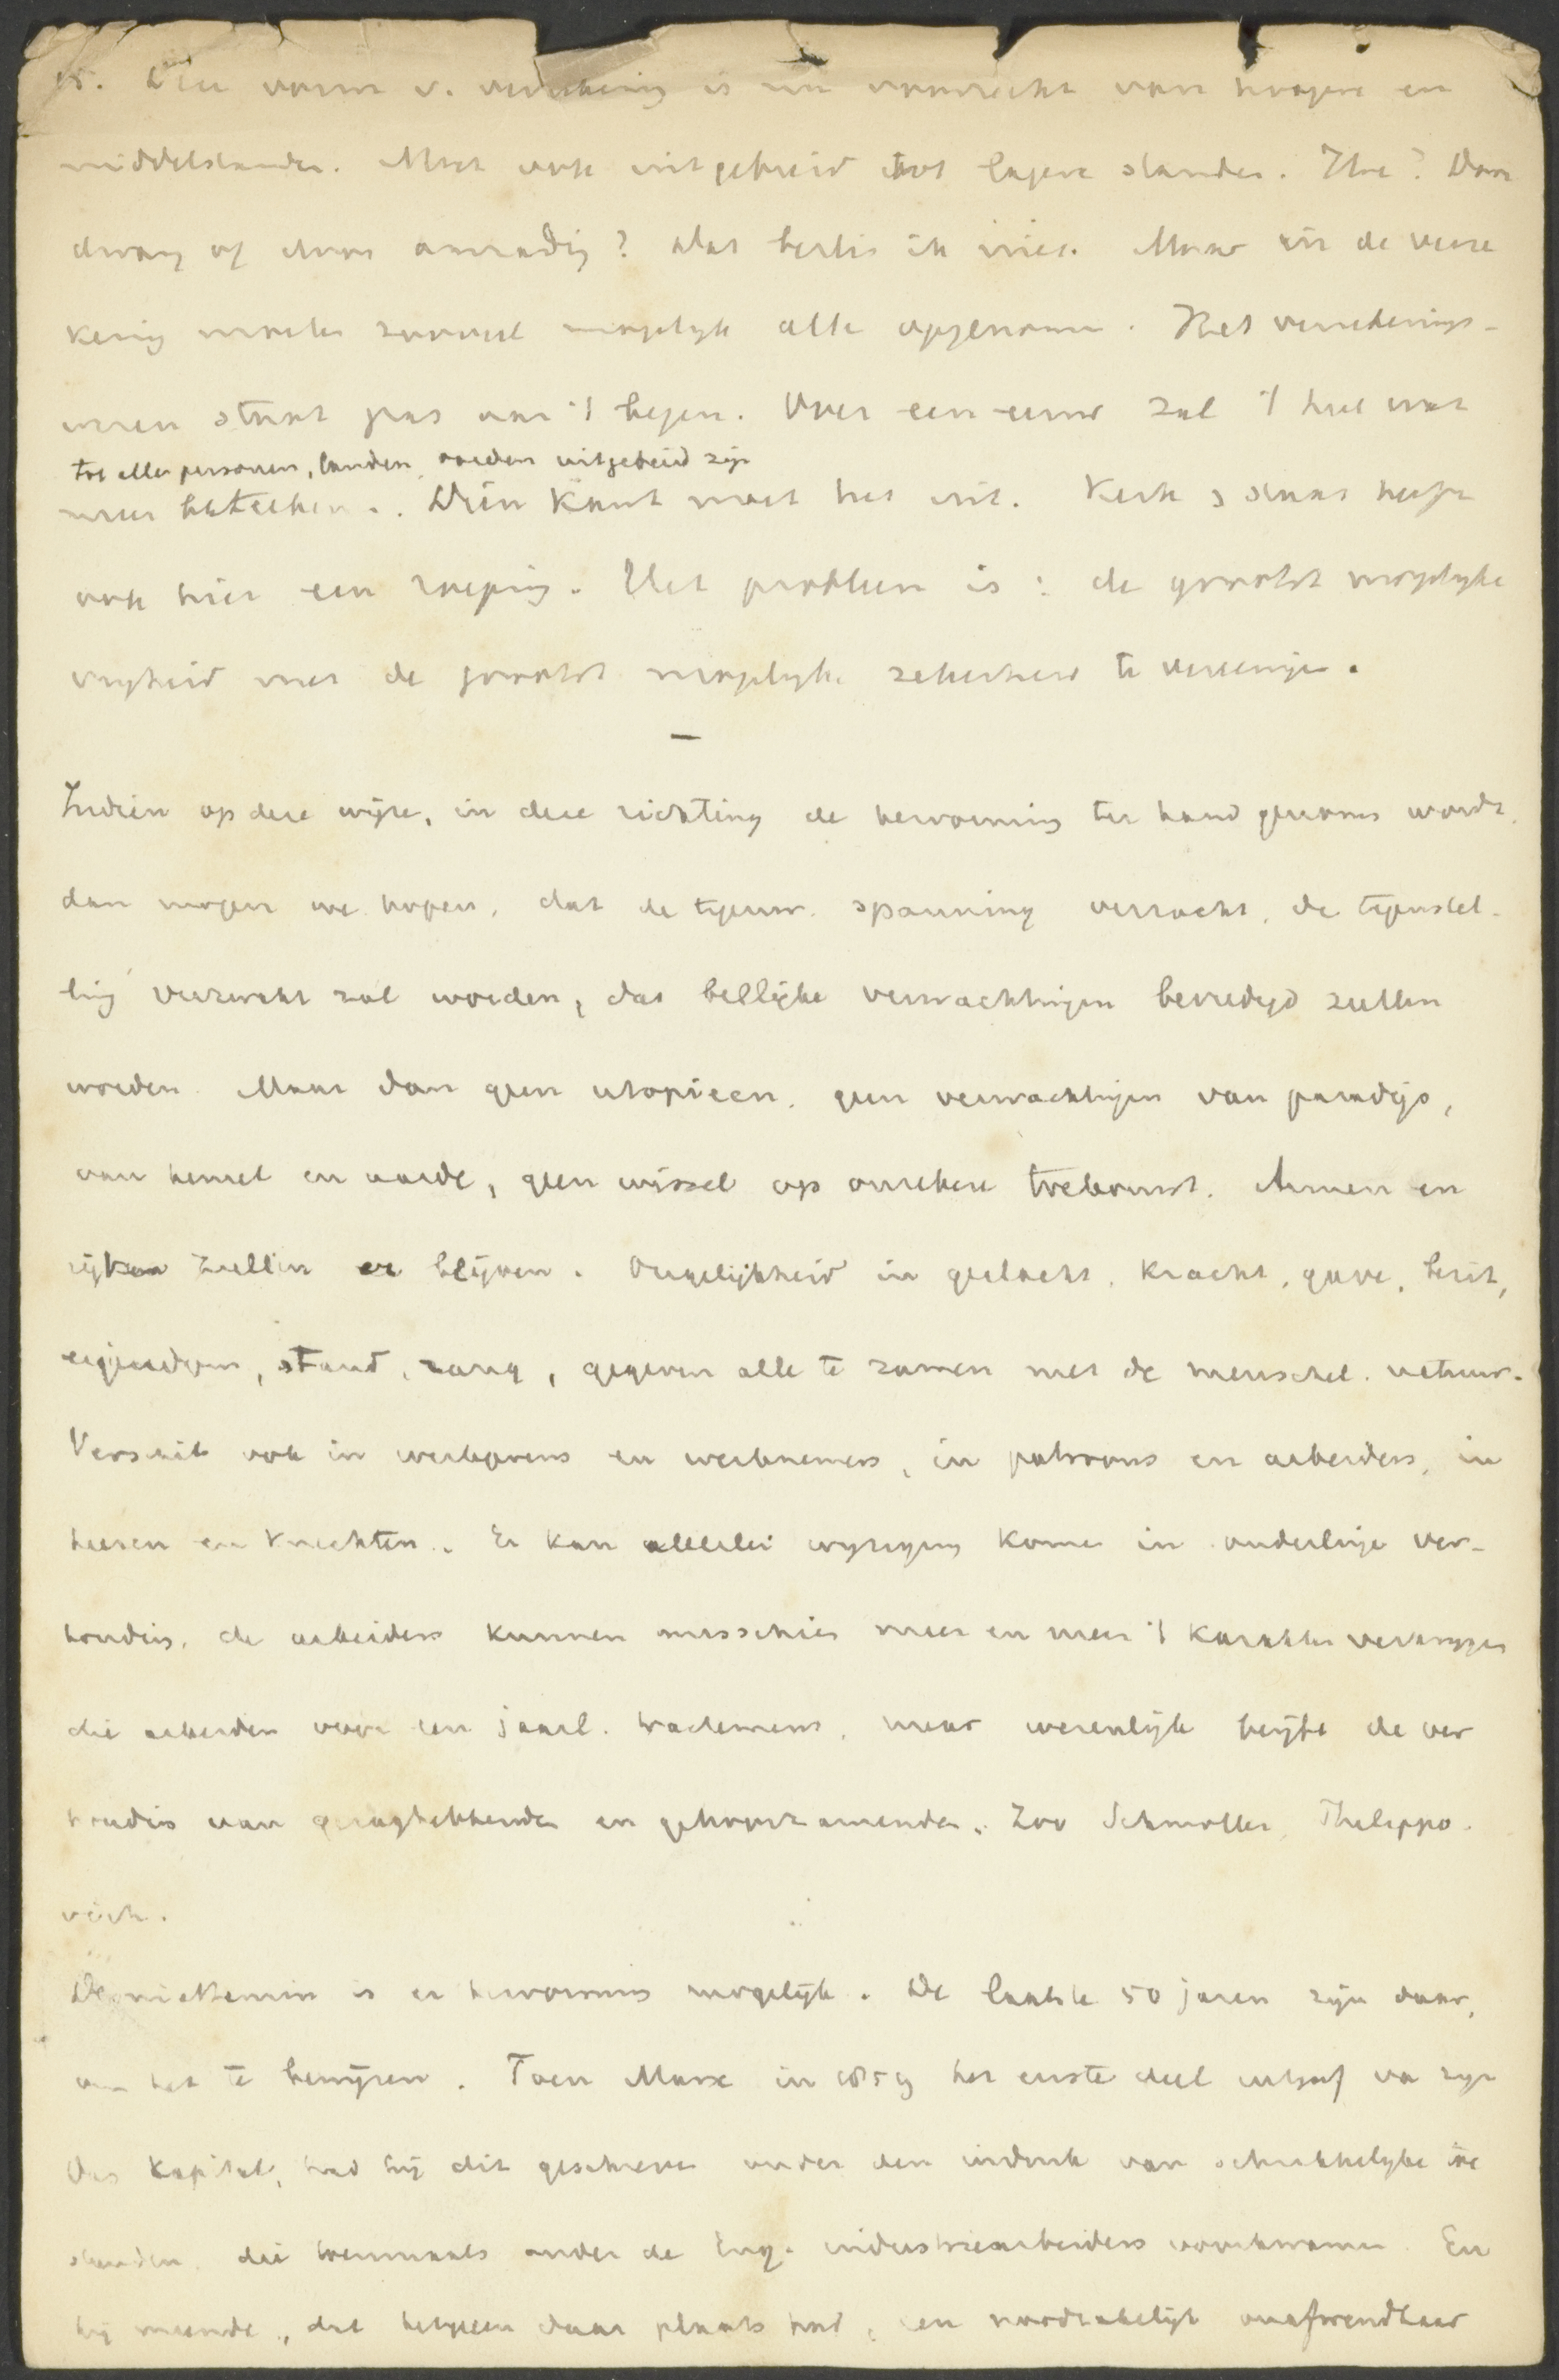 is. Deze vorm v. verzekering is nu voorrecht van hoogere en
middelstanden. Moet ook uitgebreid tot lagere standen. Hoe? Door
dwang of door aanradig? dat beslis ik niet. Maar in de verze
kering moeten zooveel mogelyk alle opgenomen. Het verzekerings-
wezen staat pas aan 't begin. Over een eeuw zal 't heel wat
tot alle personen, landen, goederen uitgebreid zijn
meer beteeken.. Dien kant moet het uit. Kerk & staat heeft
ook hier een roeping. Het probleem is: de grootst mogelyke
vryheid met de grootst mogelyke zekerheid te vereenige.
—
Indien op deze wijze, in deze richting de hervorming ter hand genomen wordt,
dan mogen we hopen, dat de tegenw. spanning verzacht, de tegenstel-
ling verzwakt zal worden, dat billijke verwachtingen bevredigd zullen
worden. Maar dan geen utopieen, geen verwachtingen van paradijs,
van hemel en aarde, geen wissel op onzekere toekomst. Armen en
rijken zullen er blijven. Ongelijkheid in geslacht, kracht, gave, bezit,
eigendom, stand, rang, gegeven alle te zamen met de menschel. natuur.
Verschil ook in werkgevers en werknemers, in patroons en arbeiders, in
heeren en knechten. Er kan allerlei wyziging kome in onderlinge ver-
houdin, de arbeiders kunnen misschien meer en meer 't karakter verkrygen
die arbeiden voor een jaarl. tractement, maar wezenlijk blijft de ver
houdin van gezaghebbende en gehoorzamende. Zoo Schmoller, Philippo-
vich.
Desniettemin is er hervorming mogelijk. De laatste 50 jaren zijn daar,
om het te bewijzen. Toen Marx in 1859 het eerste deel uitgaf va zijn
Das Kapital, had hij dit geschreven onder den indruk van schrikkelyke toe
standen, die toenmaals onder de Eng. industriearbeiders voorkwamen. En
hij meende, dat hetgeen daar plaats had, een noodzakelijk onafwendbaar